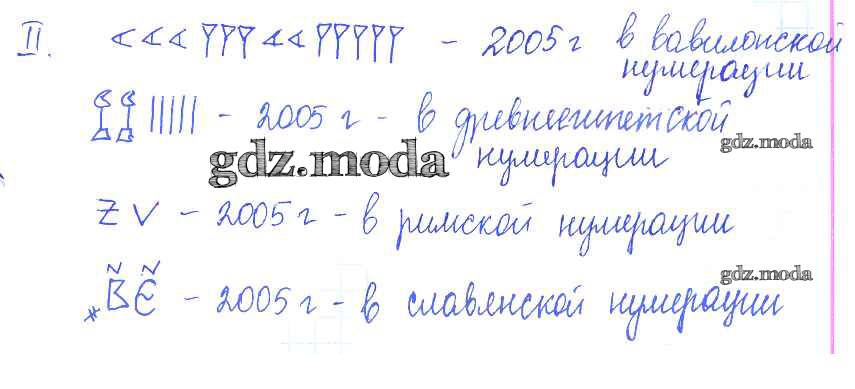 II. <<< YYY << YYYYY - 2005 г в вавилонской
нумерации
||||| - 2005 г - в древнеегипетской
gdz.moda
нумерации
gdz.moda
Z V - 2005 г - в римской нумерации
gdz.moda
*В Є - 2005 г - в славянской нумерации